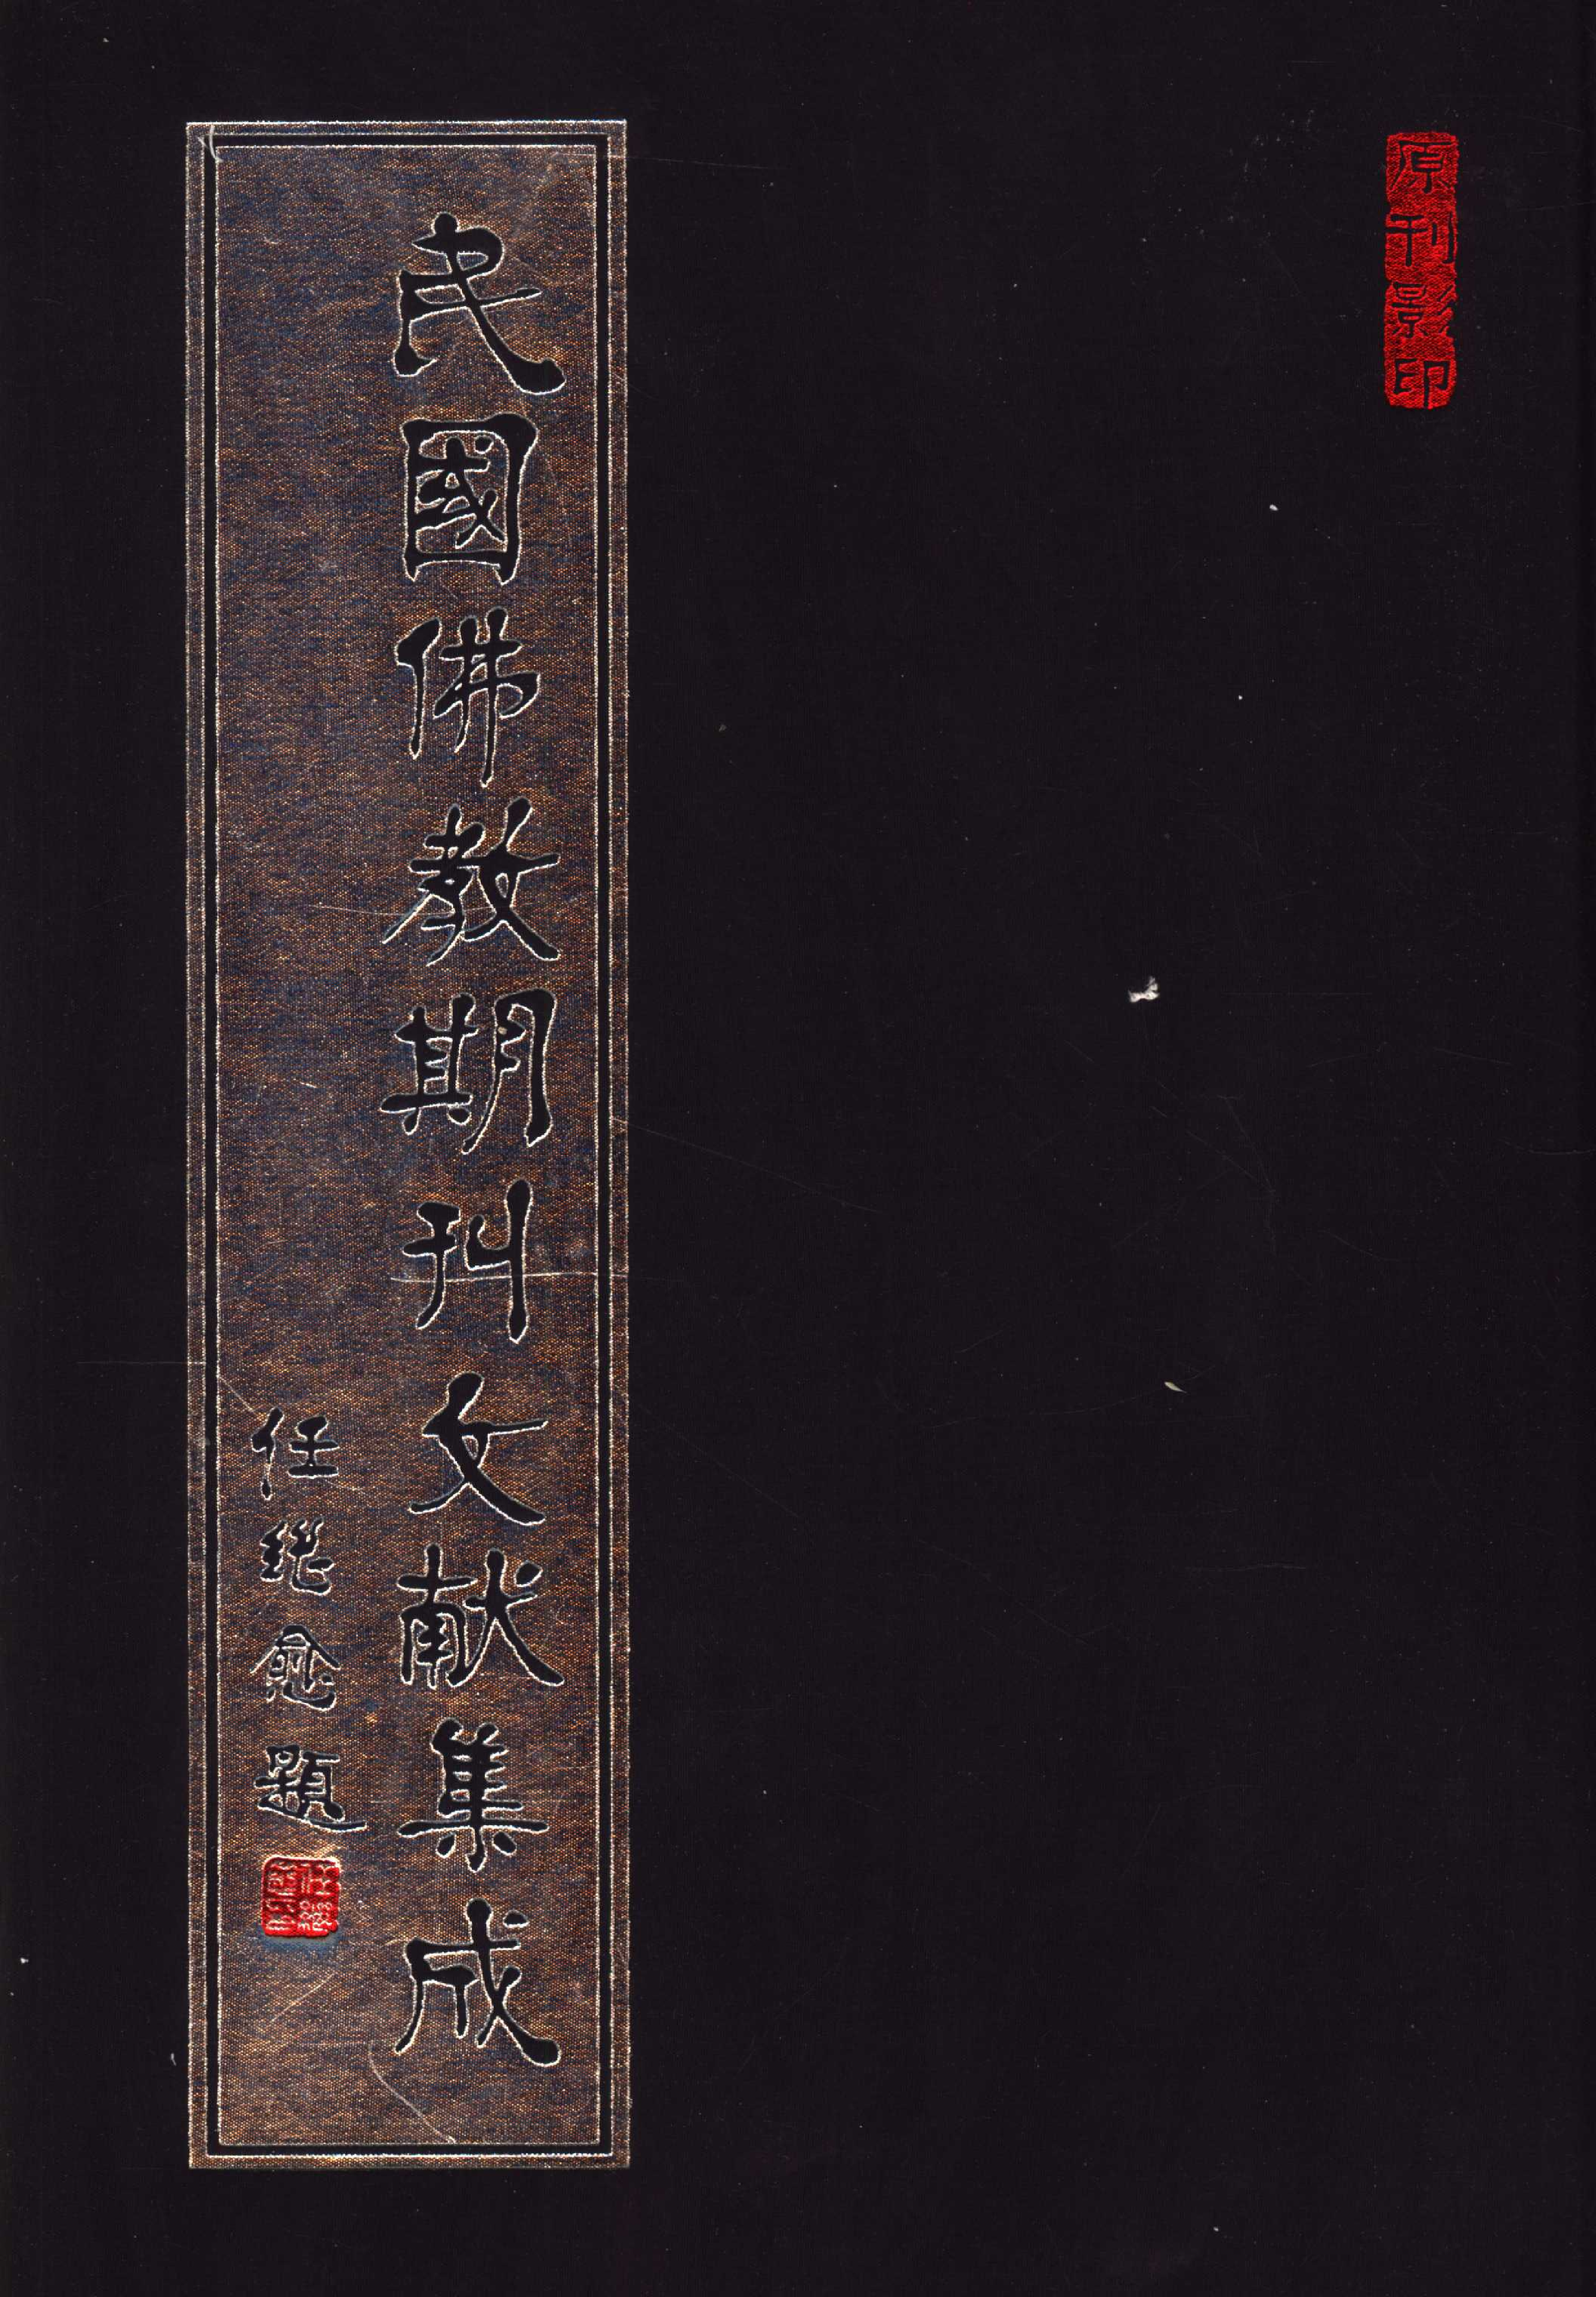 原刊影印
民國佛教期刊文献集成
任继愈题